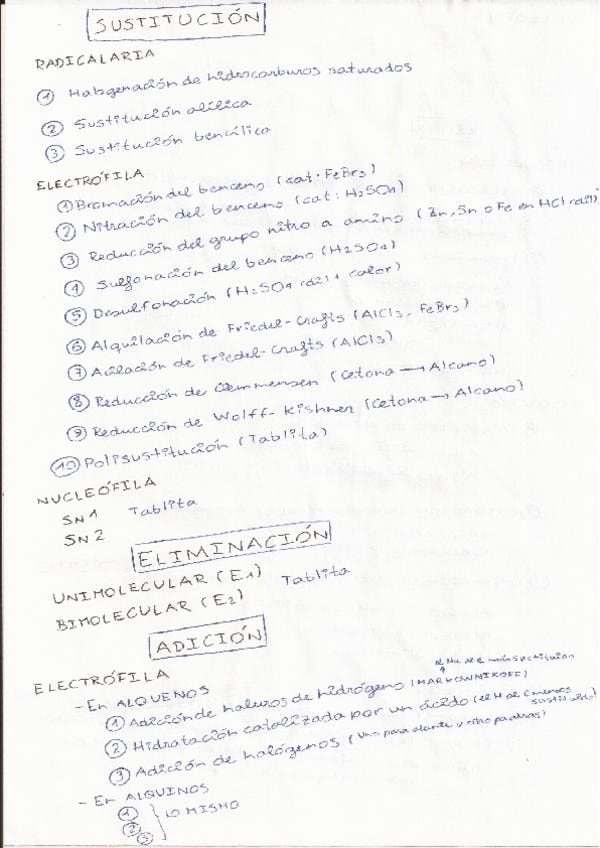 SUSTITUCIÓN
RADICALARIA
① Halogenación de hidrocarburos saturados
② Sustitución alílica
③ Sustitución bencílica
ELECTRÓFILA
① Bromación del benceno (cat. FeBr3)
② Nitración del benceno (cat: H2SO4)
③ Reducción del grupo nitro a amino (Zn, Sn o Fe en HCl (dil))
④ Sulfonación del benceno (H2SO4)
⑤ Desulfonación (H2SO4 (dil) + calor)
⑥ Alquilación de Friedel-Crafts (AlCl3, FeBr3)
⑦ Acilación de Friedel-Crafts (AlCl3)
⑧ Reducción de Clemmensen (Cetona → Alcano)
⑨ Reducción de Wolff-Kishner (Cetona → Alcano)
⑩ Polisustitución (Tablita)
NUCLEÓFILA
SN1 Tablita
SN2
ELIMINACIÓN
UNIMOLECULAR (E1) Tablita
BIMOLECULAR (E2)
ADICIÓN
ELECTRÓFILA
- En ALQUENOS
el Nu al C más sustituido
① Adición de haluros de hidrógeno (MARKOWNIKOFF)
② Hidratación catalizada por un ácido (el H al C menos sustituido)
③ Adición de halógenos (uno para alante y otro pa atrás)
- En ALQUINOS
①
② } LO MISMO
③